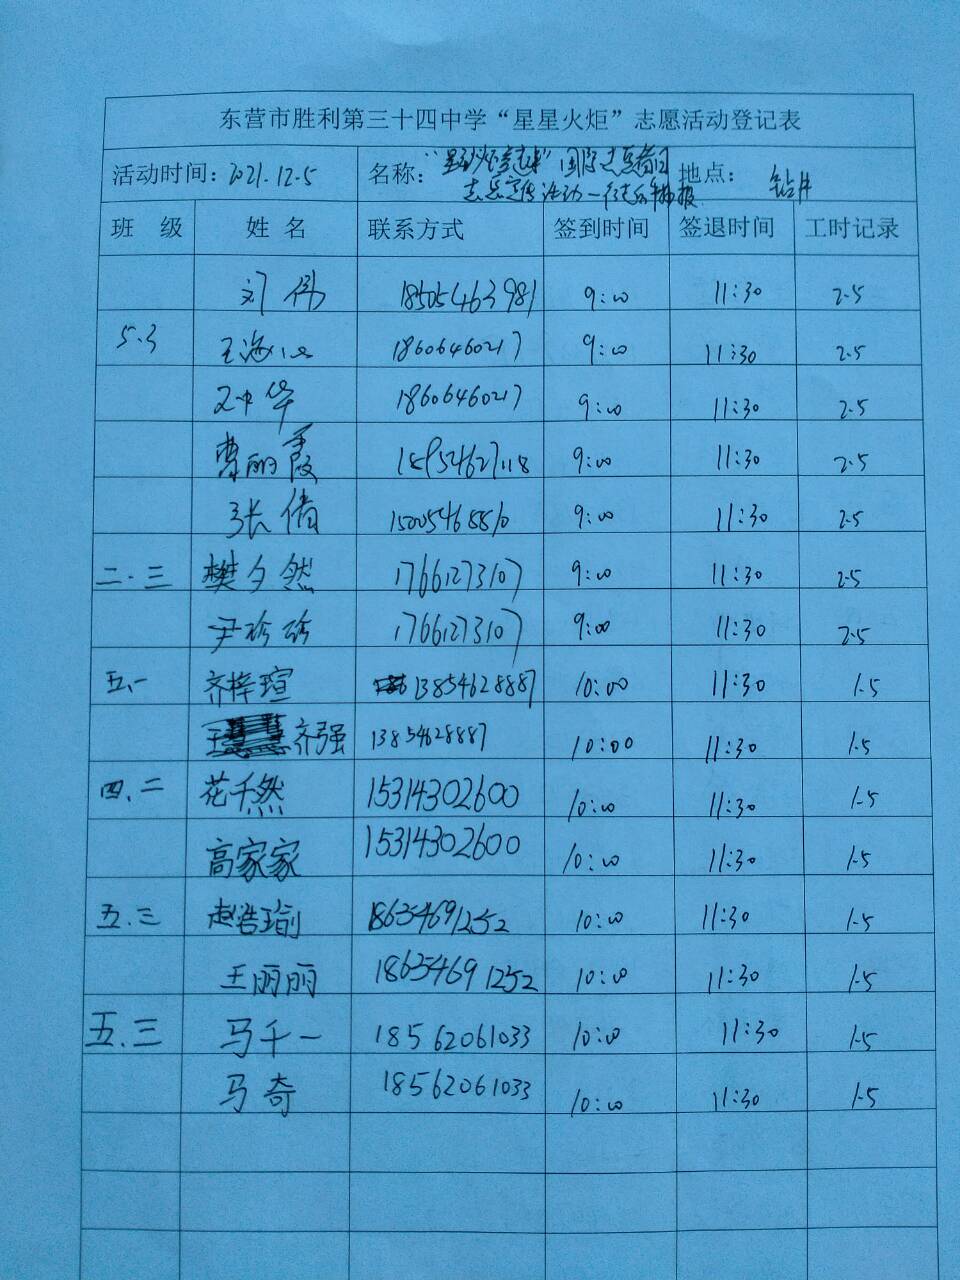 东营市胜利第三十四中学“星星火炬”志愿活动登记表
活动时间：2021.12.5 名称： 国际志愿者日 地点：
志愿宣传活动一
班 级 姓 名 联系方式 签到时间 签退时间 工时记录
刘伟 18505463981 9:00 11:30 2.5
5.3 王海 18606460217 9:00 11:30 2.5
中华 18606460217 9:00 11:30 2.5
曹丽霞 15954627118 9:00 11:30 2.5
张倩 15005468810 9:00 11:30 2.5
二.三 樊夕然 17661273107 9:00 11:30 2.5
尹珍珍 17661273107 9:00 11:30 2.5
五.一 齐梓瑄 13854628887 10:00 11:30 1.5
齐强 13854628887 10:00 11:30 1.5
四.二 花千然 15314302600 10:00 11:30 1.5
高家家 15314302600 10:00 11:30 1.5
五.三 赵浩瑜 18654691252 10:00 11:30 1.5
王丽丽 18654691252 10:00 11:30 1.5
五.三 马千一 18562061033 10:00 11:30 1.5
马奇 18562061033 10:00 11:30 1.5